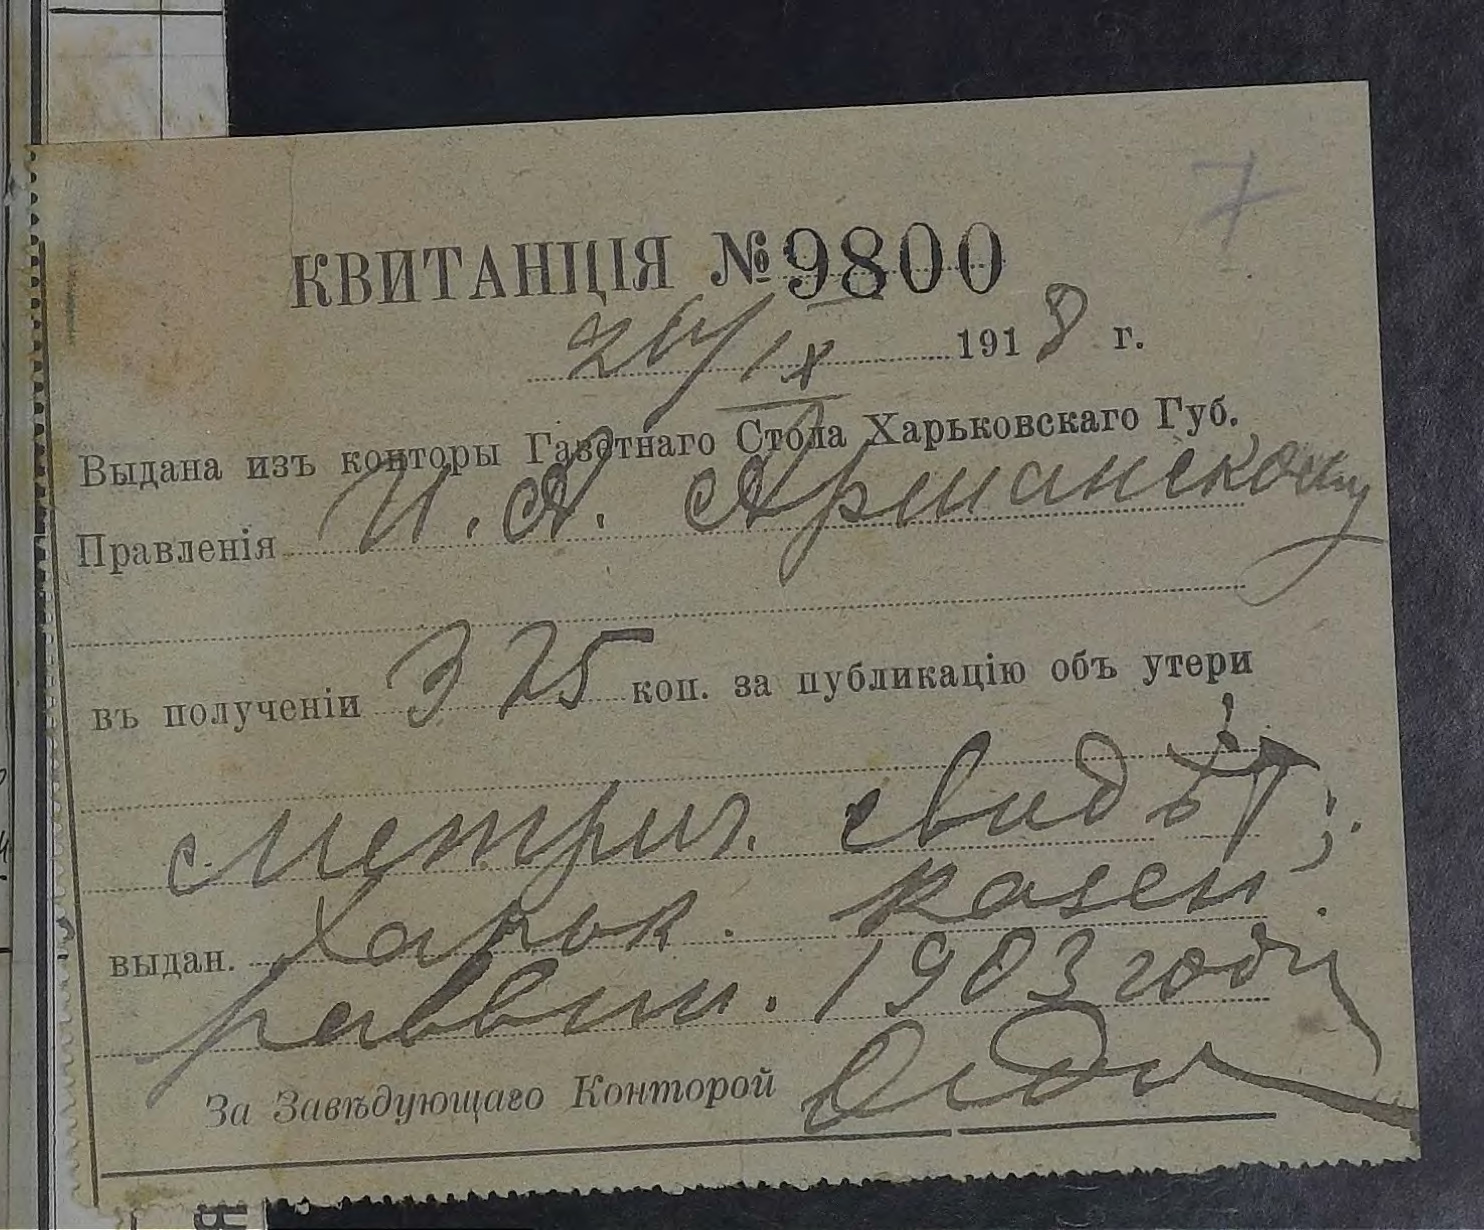 7
КВИТАНЦІЯ № 9800
24/IX 1918 г.
Выдана изъ конторы Газетнаго Стола Харьковскаго Губ.
Правленія И. А. Аршанскому
въ полученіи 3 75 коп. за публикацію объ утери
метрич. свидѣт.
выдан. Харьк. казен.
раввин. 1903 году
За Завѣдующаго Конторой